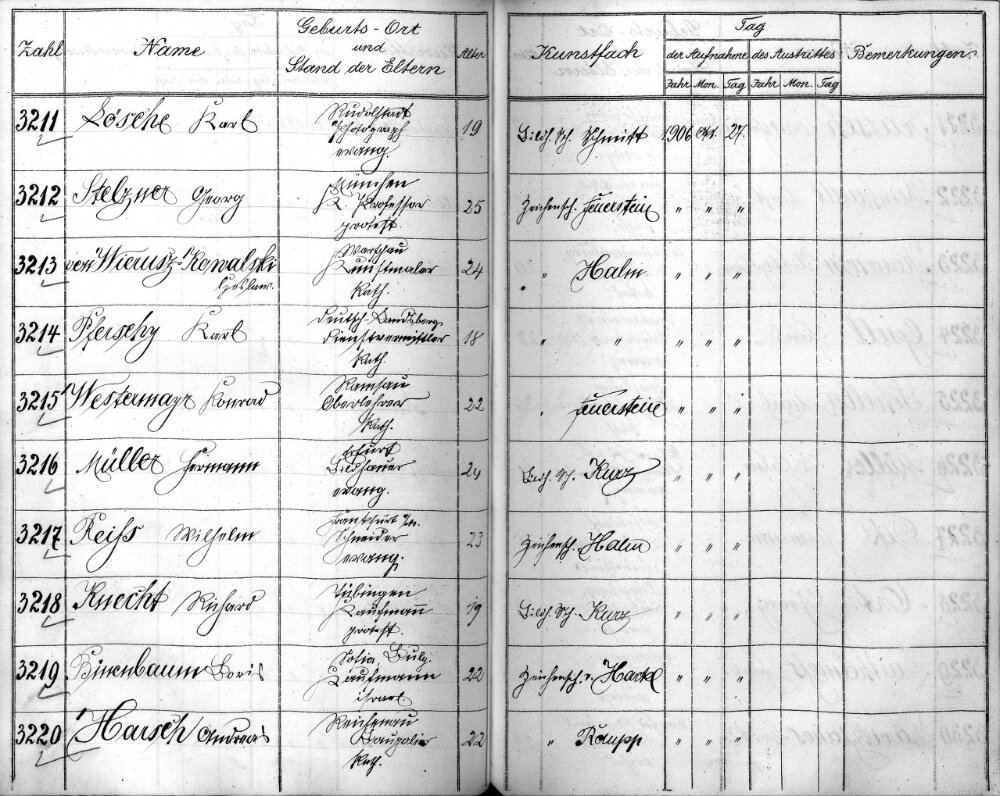 Zahl
Name
Geburts-Ort
und
Stand der Eltern
Alter
Kunstfach
Tag
der Aufnahme
des Austrittes
Jahr
Mon.
Tag
Jahr
Mon.
Tag
Bemerkungen.
3211
Lösche Karl
Rudolstadt
Photograph
evang.
19
Bildh. Sch. Schmitt
1906
Okt.
27.
3212
Stelzner Georg
München
K. Professor
protest.
25
Zeichensch. Feuerstein
" " "
3213
von Wierusz-Kowalski
Czeslaw.
Warschau
Kunstmaler
Kath.
24
" Halm
" " "
3214
Pferschy Karl
Deutsch-Landsberg,
Dienstvermittler
Kath.
18
" "
" " "
3215
Westermayr Konrad
Ramsau
Oberlehrer
Kath.
22
" Feuerstein
" " "
3216
Müller Hermann
Erfurt
Bildhauer
evang.
24
Bildh. Sch. Kurz
" " "
3217
Reiß Wilhelm
Frankfurt a/M.
Schneider
evang.
23
Zeichensch. Halm
" " "
3218
Knecht Richard
Tübingen
Kaufmann
protest.
19
Bildh. Sch. Kurz
" " "
3219
Binenbaum Boris
Sofia, Bulg.
Kaufmann
israel.
22
Zeichensch. v. Hackl
" " "
3220
Harsch Andreas
Reichenau
Kath.
22
" Raupp
" " "